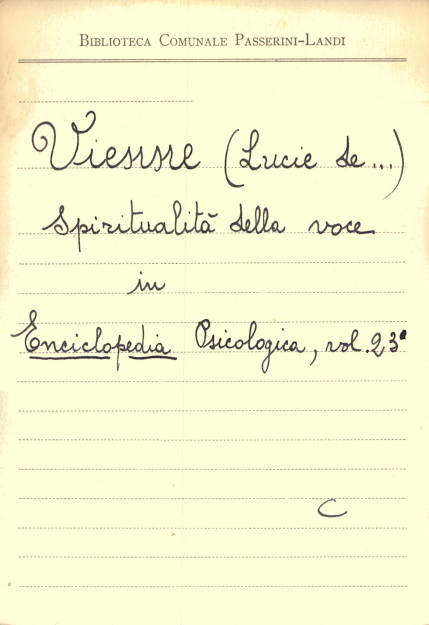 BIBLIOTECA COMUNALE PASSERINI-LANDI
Vienne (Lucie de...)
Spiritualità della voce
in
Enciclopedia Psicologica, vol. 23°
C